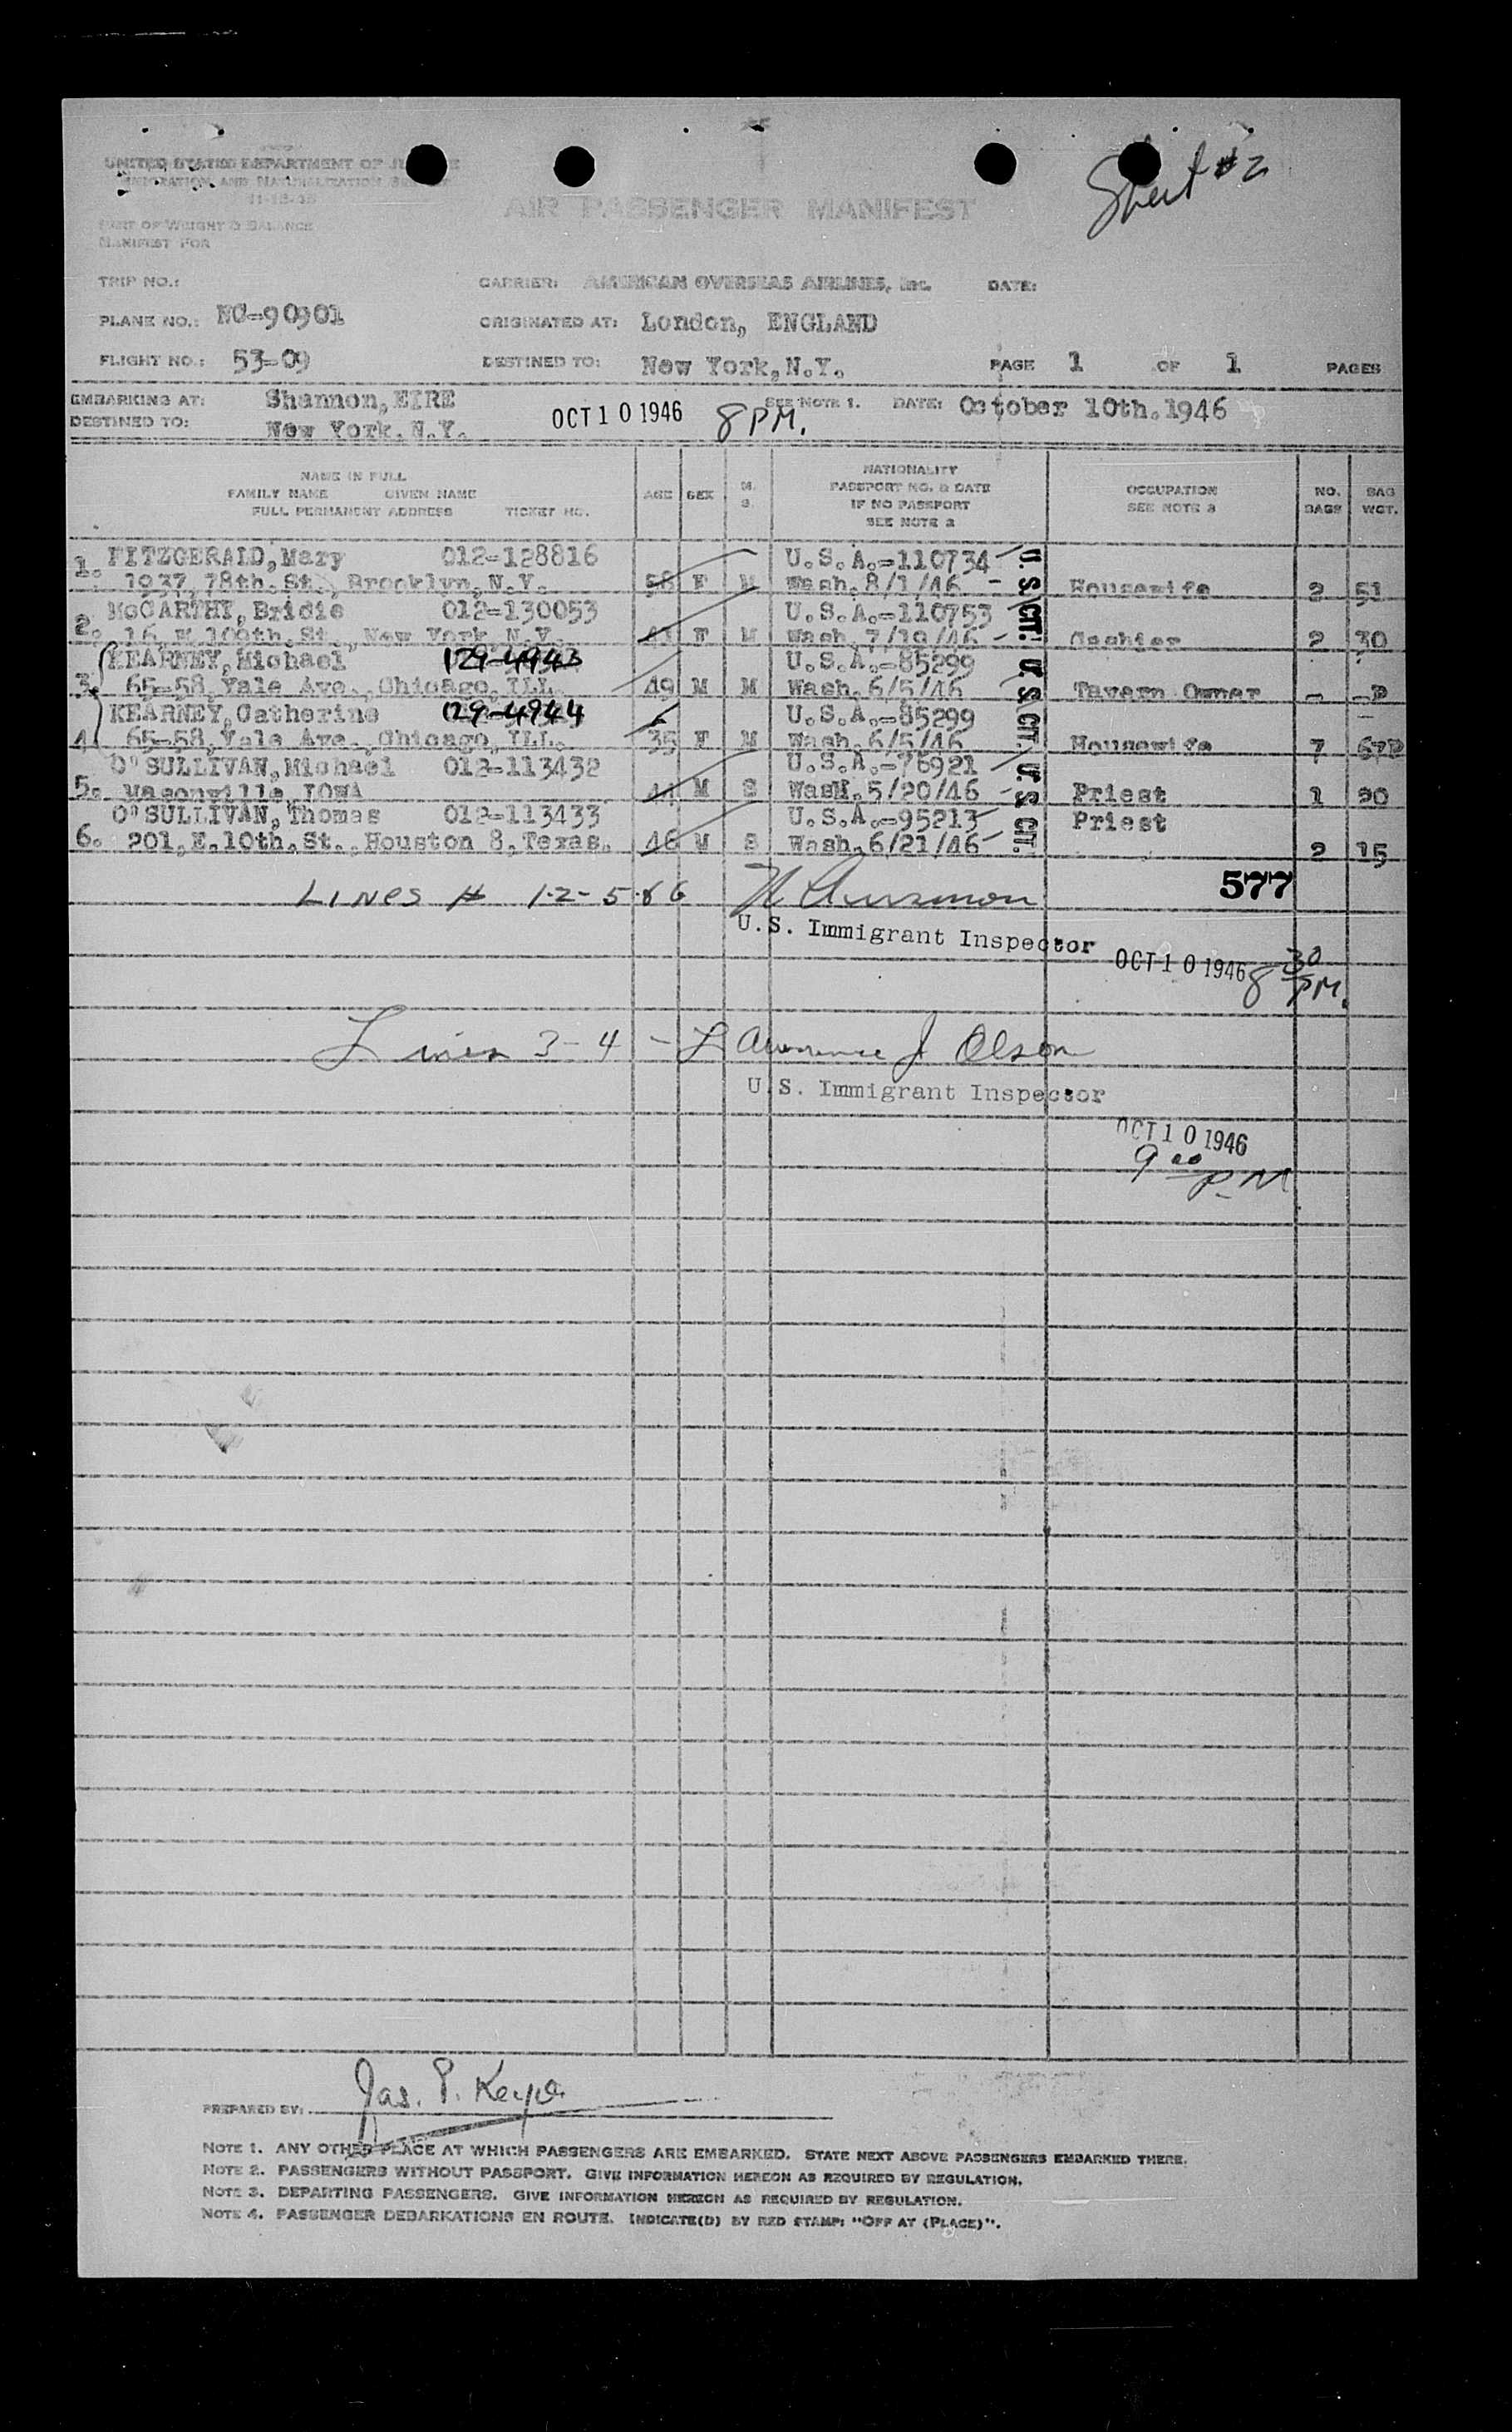 Sheet #2
UNITED STATES DEPARTMENT OF
IMMIGRATION AND NATURALIZATION
AIR PASSENGER MANIFEST
PART OF WEIGHT & BALANCE
MANIFEST FOR
TRIP NO.: CARRIER: AMERICAN OVERSEAS AIRLINES, Inc. DATE:
PLANE NO.: NC-90901 ORIGINATED AT: London, ENGLAND
FLIGHT NO.: 53-09 DESTINED TO: New York, N.Y. PAGE 1 OF 1 PAGES
EMBARKING AT: Shannon, EIRE OCT 10 1946 8 PM. SEE NOTE 1. DATE: October 10th. 1946
DESTINED TO: New York. N.Y.
NAME IN FULL
FAMILY NAME GIVEN NAME
FULL PERMANENT ADDRESS TICKET NO.
AGE SEX M. S.
NATIONALITY
PASSPORT NO. & DATE
IF NO PASSPORT
SEE NOTE 2
OCCUPATION
SEE NOTE 3
NO. BAGS
BAG WGT.
1. FITZGERALD, Mary 012-128816 U.S.A.-110734 U.S. CIT.
1937, 78th. St., Brooklyn, N.Y. 58 F M Wash. 8/1/46 - Housewife 2 51
2. McCARTHY, Bridie 012-130053 U.S.A.-110753
16, E. 109th. St., New York, N.Y. 41 F M Wash. 7/19/46 - Cashier 2 30
3. KEARNEY, Michael 129-4943 U.S.A.-85299 U.S. CIT.
65-58, Yale Ave., Chicago, ILL. 49 M M Wash. 6/5/46 Tavern Owner - -P
4. KEARNEY, Catherine 129-4944 U.S.A.-85299
65-58, Yale Ave., Chicago, ILL. 35 F M Wash. 6/5/46 Housewife 7 67P
5. O'SULLIVAN, Michael 012-113432 U.S.A.-76921 U.S. CIT.
Masonville, IOWA 44 M S Wash. 5/20/46 - Priest 1 20
O'SULLIVAN, Thomas 012-113433 U.S.A.-95213 Priest
6. 201, E. 10th. St., Houston 8, Texas. 46 M S Wash. 6/21/46 2 15
LINES # 1-2-5 & 6 577
U.S. Immigrant Inspector
OCT 10 1946 8 30 PM.
Lines 3-4 - Lawrence J Olson
U.S. Immigrant Inspector
OCT 10 1946
9 00 PM
PREPARED BY: Jas. P.
NOTE 1. ANY OTHER PLACE AT WHICH PASSENGERS ARE EMBARKED. STATE NEXT ABOVE PASSENGERS EMBARKED THERE.
NOTE 2. PASSENGERS WITHOUT PASSPORT. GIVE INFORMATION HEREON AS REQUIRED BY REGULATION.
NOTE 3. DEPARTING PASSENGERS. GIVE INFORMATION HEREON AS REQUIRED BY REGULATION.
NOTE 4. PASSENGER DEBARKATIONS EN ROUTE. INDICATE(D) BY RED STAMP: "OFF AT (PLACE)".